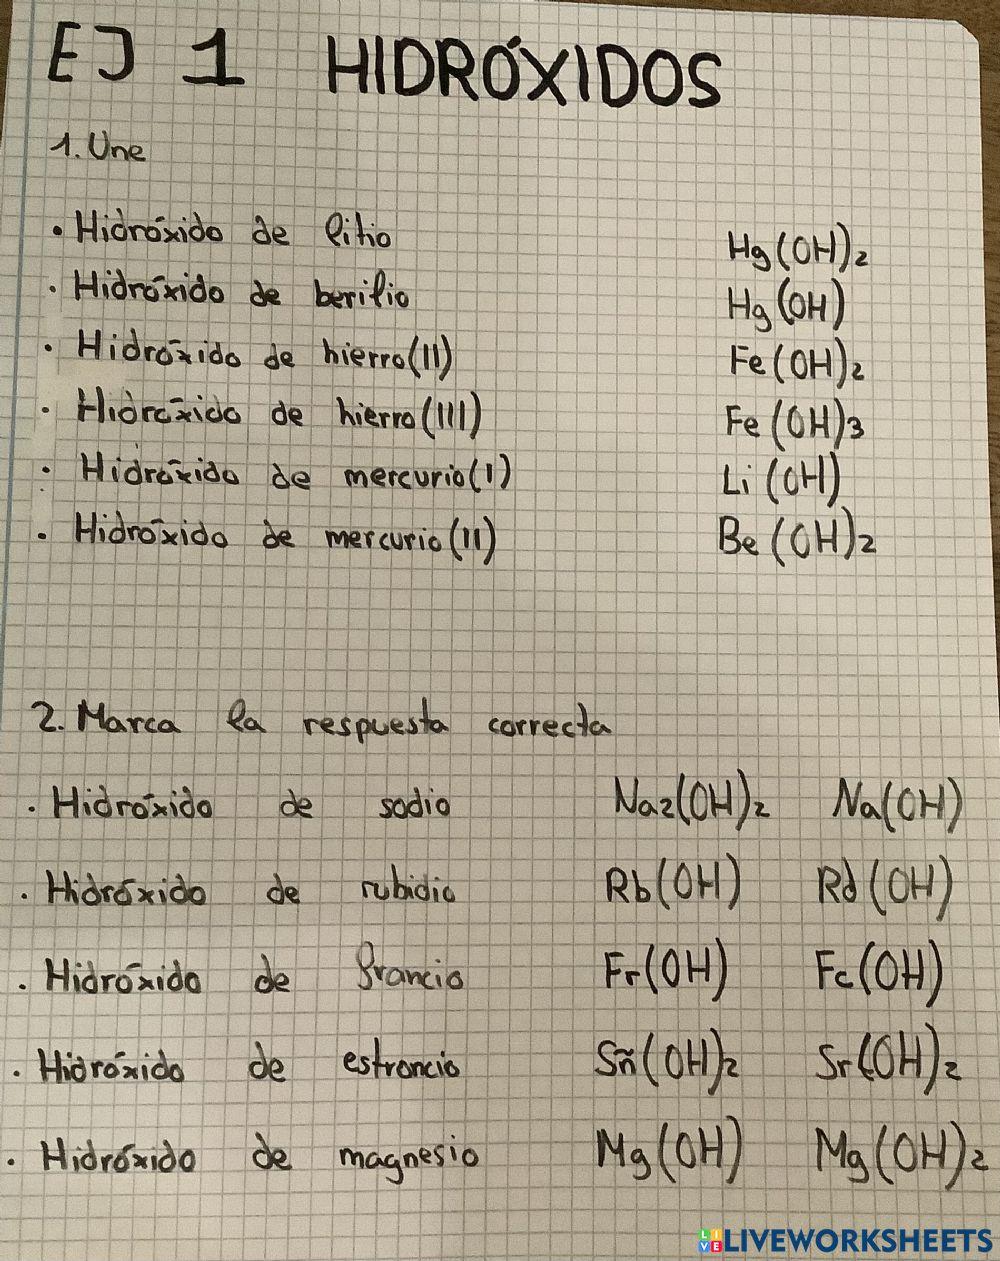 EJ 1 HIDRÓXIDOS
1. Une
• Hidróxido de litio Hg(OH)2
• Hidróxido de berilio Hg(OH)
• Hidróxido de hierro(II) Fe(OH)2
• Hidróxido de hierro(III) Fe(OH)3
• Hidróxido de mercurio(I) Li(OH)
• Hidróxido de mercurio(II) Be(OH)2
2. Marca la respuesta correcta
• Hidróxido de sodio Na2(OH)2 Na(OH)
• Hidróxido de rubidio Rb(OH) Rd(OH)
• Hidróxido de francio Fr(OH) Fc(OH)
• Hidróxido de estroncio Sñ(OH)2 Sr(OH)2
• Hidróxido de magnesio Mg(OH) Mg(OH)2
LIVE LIVEWORKSHEETS